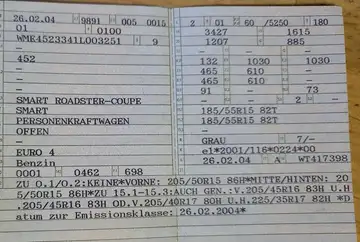 26.02.04 9891 005 0015
01 0100
WME4523341L003251 9
–
452
–
–
SMART ROADSTER-COUPE
SMART
PERSONENKRAFTWAGEN
OFFEN
–
EURO 4
Benzin
0001 0462 698
2 01 60 /5250 180
3427 1615
1207 885
– –
132 1030 1030
465 610 –
465 610 –
91 – 73
– – 2 –
185/55R15 82T
185/55R15 82T
–
GRAU 7/–
e1*2001/116*0224*00
26.02.04 A WT417398
ZU 0.1/0.2:KEINE*VORNE: 205/50R15 86H*MITTE/HINTEN: 20
5/50R15 86H*ZU 15.1-15.3:AUCH GEN.:V.205/45R16 83H U.H
.205/45R16 83H OD.V.205/40R17 80H U.H.225/35R17 82H *D
atum zur Emissionsklasse: 26.02.2004*